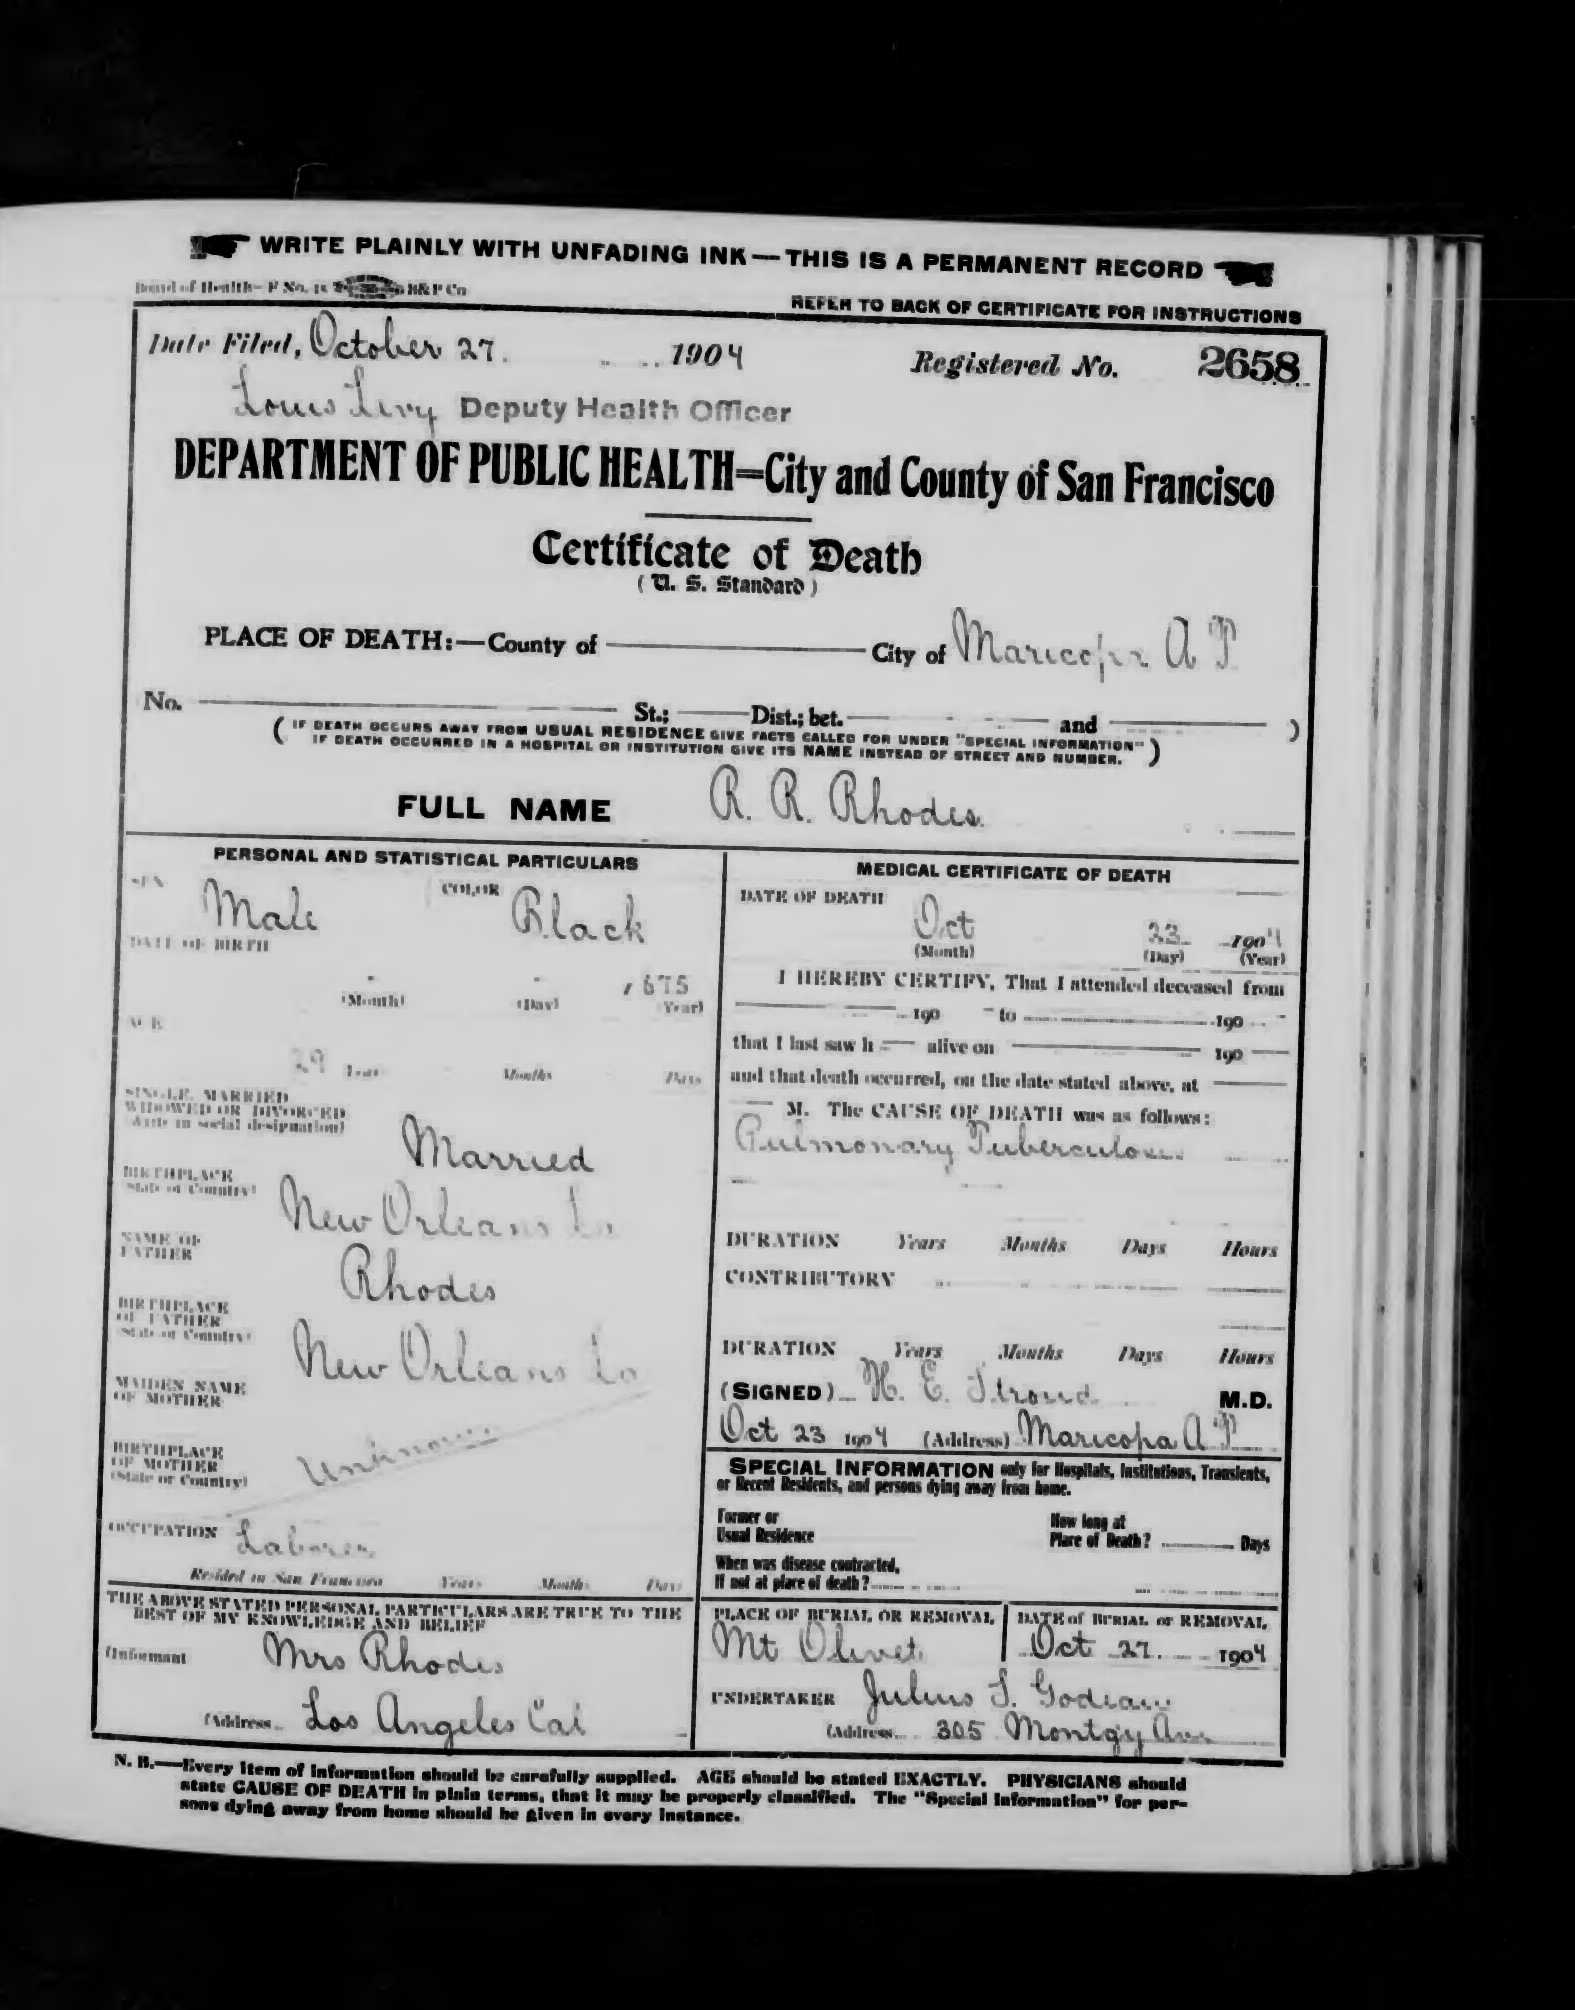 WRITE PLAINLY WITH UNFADING INK — THIS IS A PERMANENT RECORD
Board of Health— F No. 15 B&P Co
REFER TO BACK OF CERTIFICATE FOR INSTRUCTIONS
Date Filed, October 27. 1904 Registered No. 2658
Louis Levy Deputy Health Officer
DEPARTMENT OF PUBLIC HEALTH=City and County of San Francisco
Certificate of Death
( U. S. Standard )
PLACE OF DEATH:—County of City of Maricopa A T
No. St.; Dist.; bet. and )
( IF DEATH OCCURS AWAY FROM USUAL RESIDENCE GIVE FACTS CALLED FOR UNDER "SPECIAL INFORMATION"
IF DEATH OCCURRED IN A HOSPITAL OR INSTITUTION GIVE ITS NAME INSTEAD OF STREET AND NUMBER. )
FULL NAME R. R. Rhodes.
PERSONAL AND STATISTICAL PARTICULARS
SEX Male COLOR Black
DATE OF BIRTH
- - 1875
(Month) (Day) (Year)
AGE
29 Years Months Days
SINGLE, MARRIED
WIDOWED OR DIVORCED
(Write in social designation)
Married
BIRTHPLACE
(State or Country)
New Orleans La
NAME OF
FATHER
Rhodes
BIRTHPLACE
OF FATHER
(State or Country)
New Orleans La
MAIDEN NAME
OF MOTHER
BIRTHPLACE
OF MOTHER
(State or Country)
Unknown
OCCUPATION Laborer
Resided in San Francisco Years Months Days
THE ABOVE STATED PERSONAL PARTICULARS ARE TRUE TO THE
BEST OF MY KNOWLEDGE AND BELIEF
(Informant Mrs Rhodes
(Address Los Angeles Cal
MEDICAL CERTIFICATE OF DEATH
DATE OF DEATH
Oct 23 1904
(Month) (Day) (Year)
I HEREBY CERTIFY, That I attended deceased from
190 to 190
that I last saw h alive on 190
and that death occurred, on the date stated above, at
M. The CAUSE OF DEATH was as follows:
Pulmonary Tuberculosis
DURATION Years Months Days Hours
CONTRIBUTORY
DURATION Years Months Days Hours
(SIGNED) H. E. Stroud M.D.
Oct 23 1904 (Address) Maricopa A T
SPECIAL INFORMATION only for Hospitals, Institutions, Transients,
or Recent Residents, and persons dying away from home.
Former or
Usual Residence
How long at
Place of Death? Days
When was disease contracted,
If not at place of death?
PLACE OF BURIAL OR REMOVAL
Mt Olivet
DATE of BURIAL or REMOVAL
Oct 27. 1904
UNDERTAKER Julius S. Godeau
(Address 305 Montgy Ave
N. B.—Every item of information should be carefully supplied. AGE should be stated EXACTLY. PHYSICIANS should
state CAUSE OF DEATH in plain terms, that it may be properly classified. The "Special Information" for per-
sons dying away from home should be given in every instance.